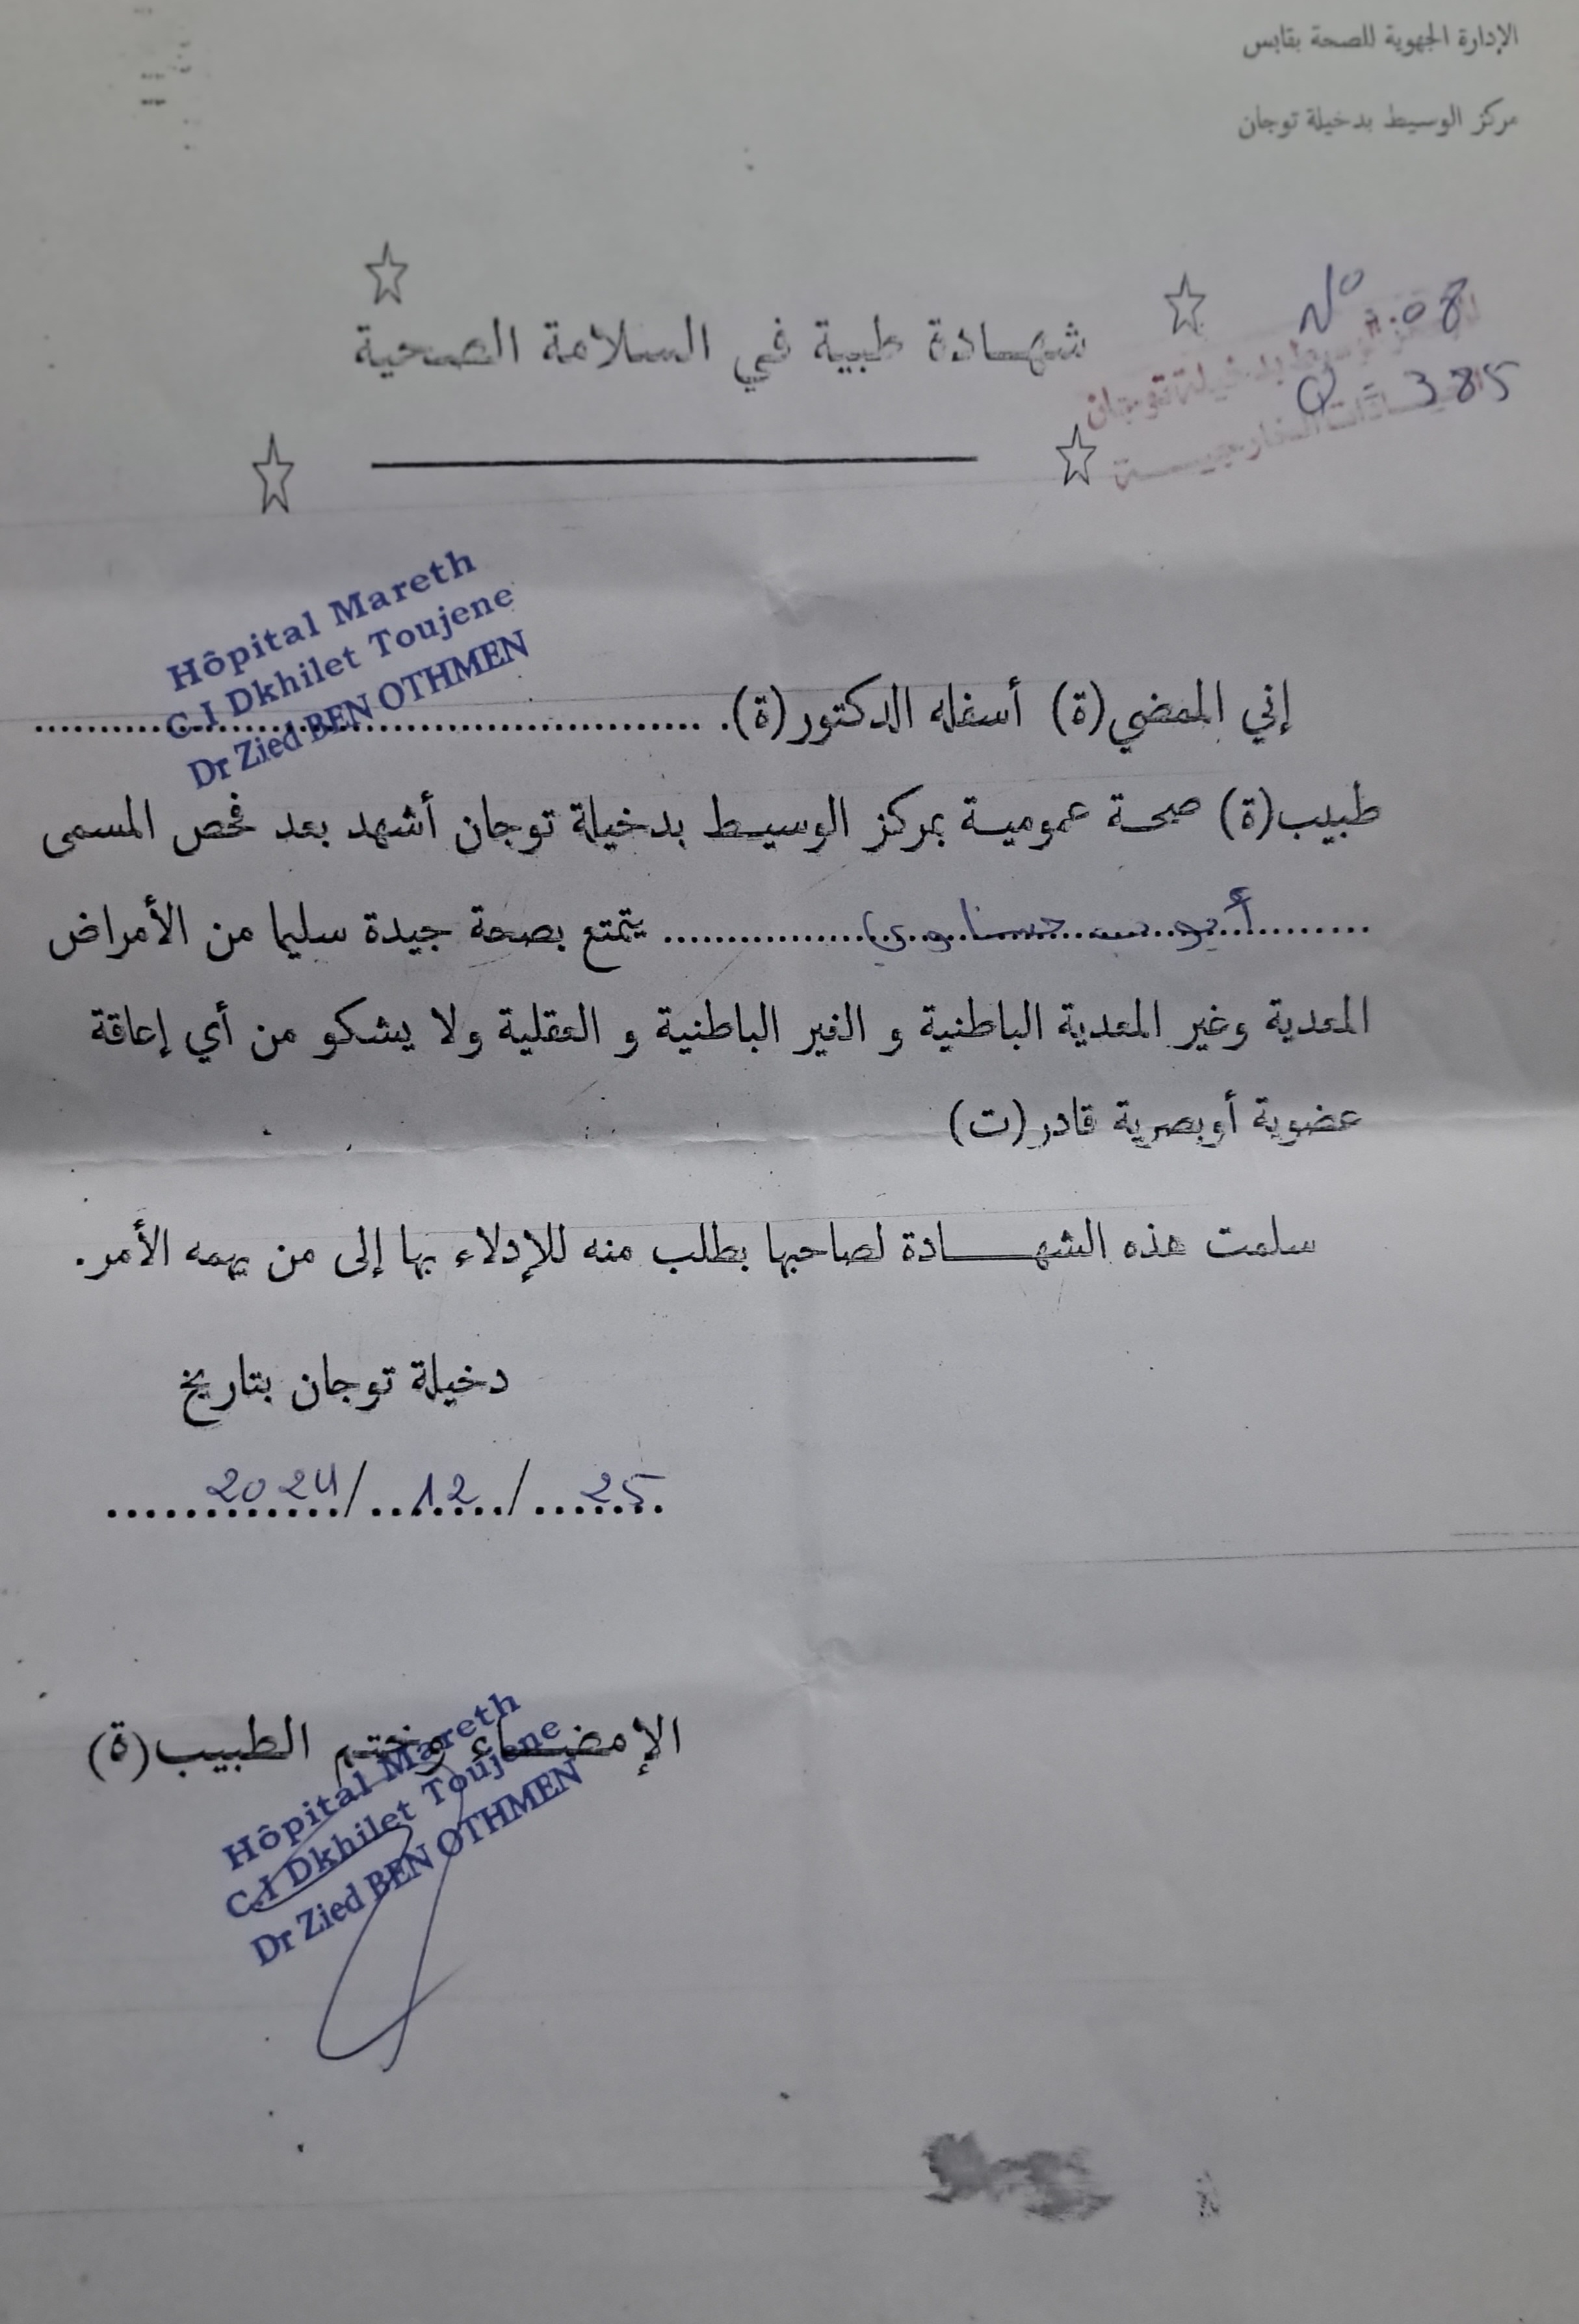 الإدارة الجهوية للصحة بقابس
مركز الوسيط بدخيلة توجان
N° : 08
Q = 385
شهادة طبية في السلامة الصحية
بدخيلة توجان
الخارجية
Hôpital Mareth
C I Dkhilet Toujene
Dr Zied BEN OTHMEN
إني الممضي(ة) أسفله الدكتور(ة).
طبيب(ة) صحة عمومية بمركز الوسيط بدخيلة توجان أشهد بعد فحص المسمى
أيوب حسناوي يتمتع بصحة جيدة سليما من الأمراض
المعدية وغير المعدية الباطنية و الغير الباطنية و العقلية ولا يشكو من أي إعاقة
عضوية أوبصرية قادر(ت)
سلمت هذه الشهادة لصاحبها بطلب منه للإدلاء بها إلى من يهمه الأمر.
دخيلة توجان بتاريخ
25 / 12 / 2024
الإمضاء وختم الطبيب(ة)
Hôpital Mareth
C I Dkhilet Toujene
Dr Zied BEN OTHMEN